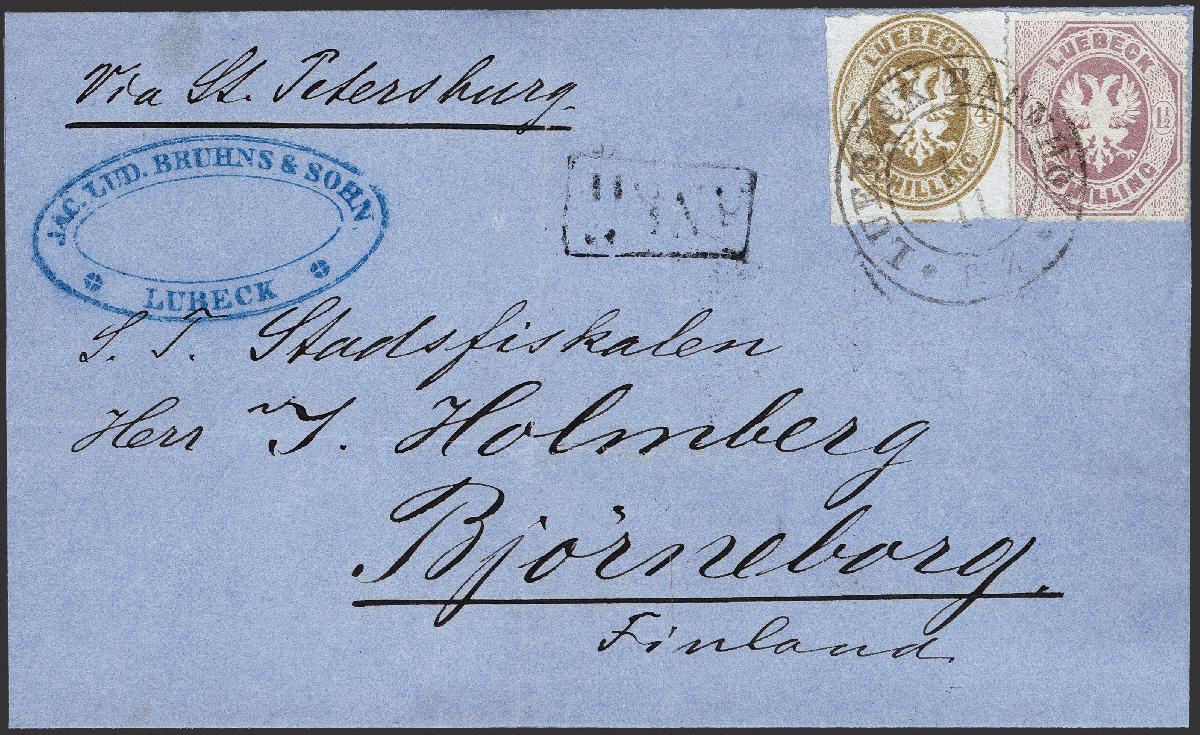 Via St. Petersburg.
JAC. LUD. BRUHNS & SOHN
LÜBECK
LUEBECK
4
SCHILLING
LUEBECK
1½
SCHILLING
LUEBECK BAHNHOF
S. T. Stadsfiskalen
Herr J. Holmberg
Björneborg.
Finland